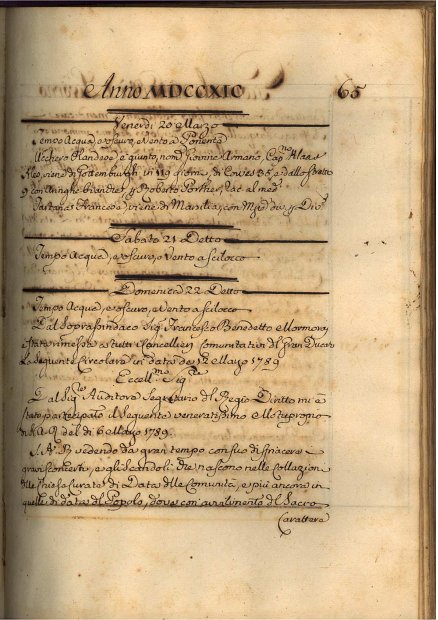 Anno MDCCXIC 65
Venerdi 20 Marzo
Tempo Acqua, e oscuro, e Vento a Ponente
Olandese è giunto, nom.
viene di Gottemburgh in 119 giorni, di 35, e dallo stretto
9 con Aringhe
Francese, viene di Marsilia, con
Sabato 21 Detto
Tempo Acqua, e oscuro, e Vento a Scilocco
Domenica 22 Detto
Tempo Acqua, e oscuro, e Vento a Scilocco
Dal Soprasindaco Sig. Francesco Benedetto Mormorai
è stata rimessa a tutti i Cancellieri Comunitativi del Gran Ducato
la seguente Circolare in data de 12 Marzo 1789
Eccell.mo Sig.re
Dal Sig.re Auditore Segretario del Regio Diritto mi è
stato partecipato il seguente veneratissimo Motuproprio
di S. A. R. del dì 6 Marzo 1789.
S. A. R. vedendo da gran tempo con suo dispiacere i
gravi sconcerti, e gli Scandoli che nascono nelle Collazioni
delle Chiese Curate di Data delle Comunità, e più ancora in
quelle di data del Popolo, dove con avvilimento del Sacro
Carattere